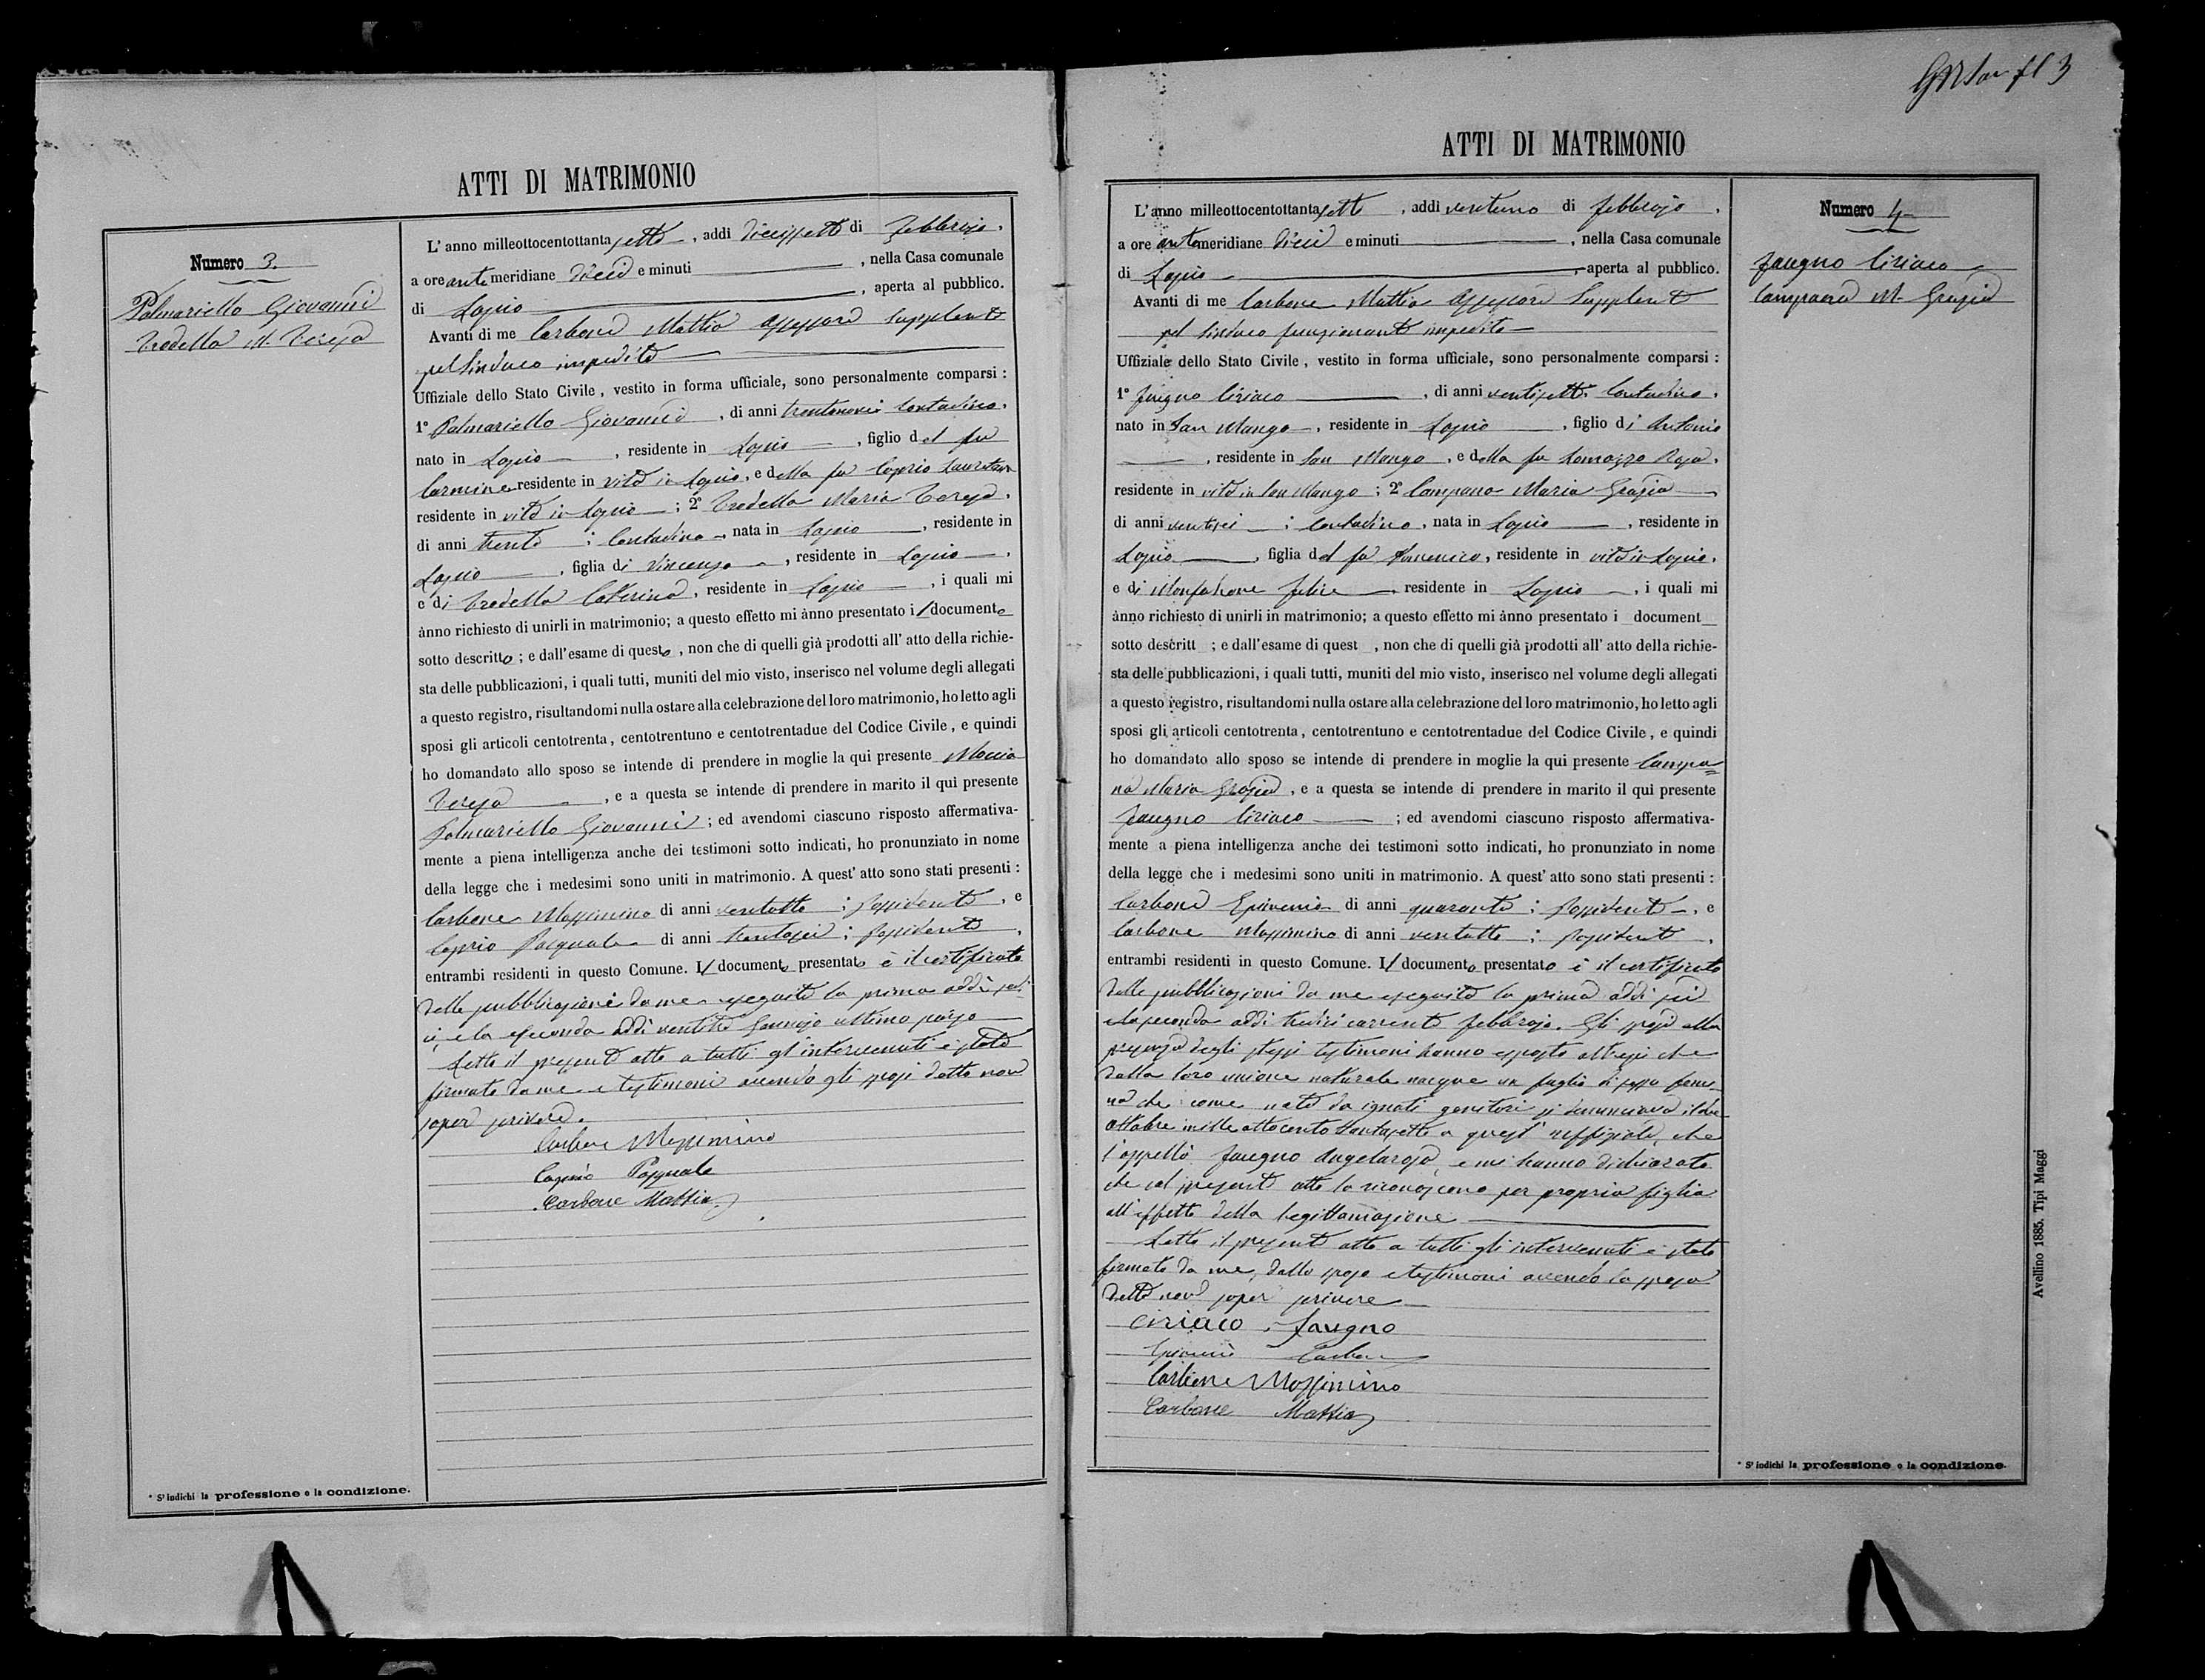 ATTI DI MATRIMONIO
Numero 3.
Palmariello Giovanni
Tredella M. Teresa
L'anno milleottocentottantasette, addi diciassette di Febbrajo,
a ore antemeridiane dieci e minuti , nella Casa comunale
di Lapio , aperta al pubblico.
Avanti di me Carbone Mattia Assessore Supplente
pel Sindaco impedito
Uffiziale dello Stato Civile, vestito in forma ufficiale, sono personalmente comparsi:
1° Palmariello Giovanni, di anni trentanove contadino,
nato in Lapio, residente in Lapio, figlio del fu
Carmine residente in vita in Lapio, e della fu Caprio
residente in vita in Lapio; 2° Tredella Maria Teresa,
di anni trenta; Contadina, nata in Lapio, residente in
Lapio, figlia di Vincenzo, residente in Lapio,
e di Tredella Caterina, residente in Lapio, i quali mi
ànno richiesto di unirli in matrimonio; a questo effetto mi ànno presentato il documento
sotto descritto; e dall'esame di questo, non che di quelli già prodotti all'atto della richie-
sta delle pubblicazioni, i quali tutti, muniti del mio visto, inserisco nel volume degli allegati
a questo registro, risultandomi nulla ostare alla celebrazione del loro matrimonio, ho letto agli
sposi gli articoli centotrenta, centotrentuno e centotrentadue del Codice Civile, e quindi
ho domandato allo sposo se intende di prendere in moglie la qui presente Maria
Teresa, e a questa se intende di prendere in marito il qui presente
Palmariello Giovanni; ed avendomi ciascuno risposto affermativa-
mente a piena intelligenza anche dei testimoni sotto indicati, ho pronunziato in nome
della legge che i medesimi sono uniti in matrimonio. A quest'atto sono stati presenti:
Carbone Massimino di anni ventotto; Possidente, e
Caprio Pasquale di anni trentasei; Possidente,
entrambi residenti in questo Comune. Il documento presentato è il certificato
delle pubblicazioni da me eseguite la prima addì sedi-
ci, e la seconda addì ventitre Gennajo ultimo passo
Letto il presente atto a tutti gl'intervenuti è stato
firmato da me e testimoni avendo gli sposi detto non
saper scrivere.
Carbone Massimino
Caprio Pasquale
Carbone Mattia
* S'indichi la professione o la condizione.
3
ATTI DI MATRIMONIO
Numero 4
Faugno Ciriaco
Campana M. Grazia
L'anno milleottocentottantasette, addi ventuno di febbrajo,
a ore antemeridiane dieci e minuti , nella Casa comunale
di Lapio , aperta al pubblico.
Avanti di me Carbone Mattia Assessore Supplente
pel Sindaco funzionante impedito
Uffiziale dello Stato Civile, vestito in forma ufficiale, sono personalmente comparsi:
1° Faugno Ciriaco, di anni ventisette Contadino,
nato in San Mango, residente in Lapio, figlio di Antonio
, residente in San Mango, e della fu Lomazzo Rosa,
residente in vita in San Mango; 2° Campana Maria Grazia
di anni ventisei; Contadina, nata in Lapio, residente in
Lapio, figlia del fu Domenico, residente in vita in Lapio,
e di Monfalcone Felice, residente in Lapio, i quali mi
ànno richiesto di unirli in matrimonio; a questo effetto mi ànno presentato i document
sotto descritt ; e dall'esame di quest , non che di quelli già prodotti all'atto della richie-
sta delle pubblicazioni, i quali tutti, muniti del mio visto, inserisco nel volume degli allegati
a questo registro, risultandomi nulla ostare alla celebrazione del loro matrimonio, ho letto agli
sposi gli articoli centotrenta, centotrentuno e centotrentadue del Codice Civile, e quindi
ho domandato allo sposo se intende di prendere in moglie la qui presente Campa=
na Maria Grazia, e a questa se intende di prendere in marito il qui presente
Faugno Ciriaco; ed avendomi ciascuno risposto affermativa-
mente a piena intelligenza anche dei testimoni sotto indicati, ho pronunziato in nome
della legge che i medesimi sono uniti in matrimonio. A quest'atto sono stati presenti:
Carbone Epivenio di anni quaranta; Possidente, e
Carbone Massimino di anni ventotto; Possidente,
entrambi residenti in questo Comune. Il documento presentato è il certificato
delle pubblicazioni da me eseguite la prima addì sei
e la seconda addì tredici corrente febbrajo. Gli sposi alla
presenza degli stessi testimoni hanno esposto altresì che
dalla loro unione naturale nacque un figlio di sesso femi-
na che come nata da ignoti genitori si denunciava il due
Ottobre mille ottocento ottantasette a quest'uffiziale, che
l'appellò Faugno Angelarosa, e mi hanno dichiarato
che col presente atto la riconoscono per propria figlia
all'effetto della legittamazione
Letto il presente atto a tutti gli intervenuti è stato
firmato da me, dallo sposo e testimoni avendo la sposa
detto non saper scrivere
Ciriaco Faugno
Carbone
Carbone Massimino
Carbone Mattia
* S'indichi la professione o la condizione.
Avellino 1885. Tipi Maggi